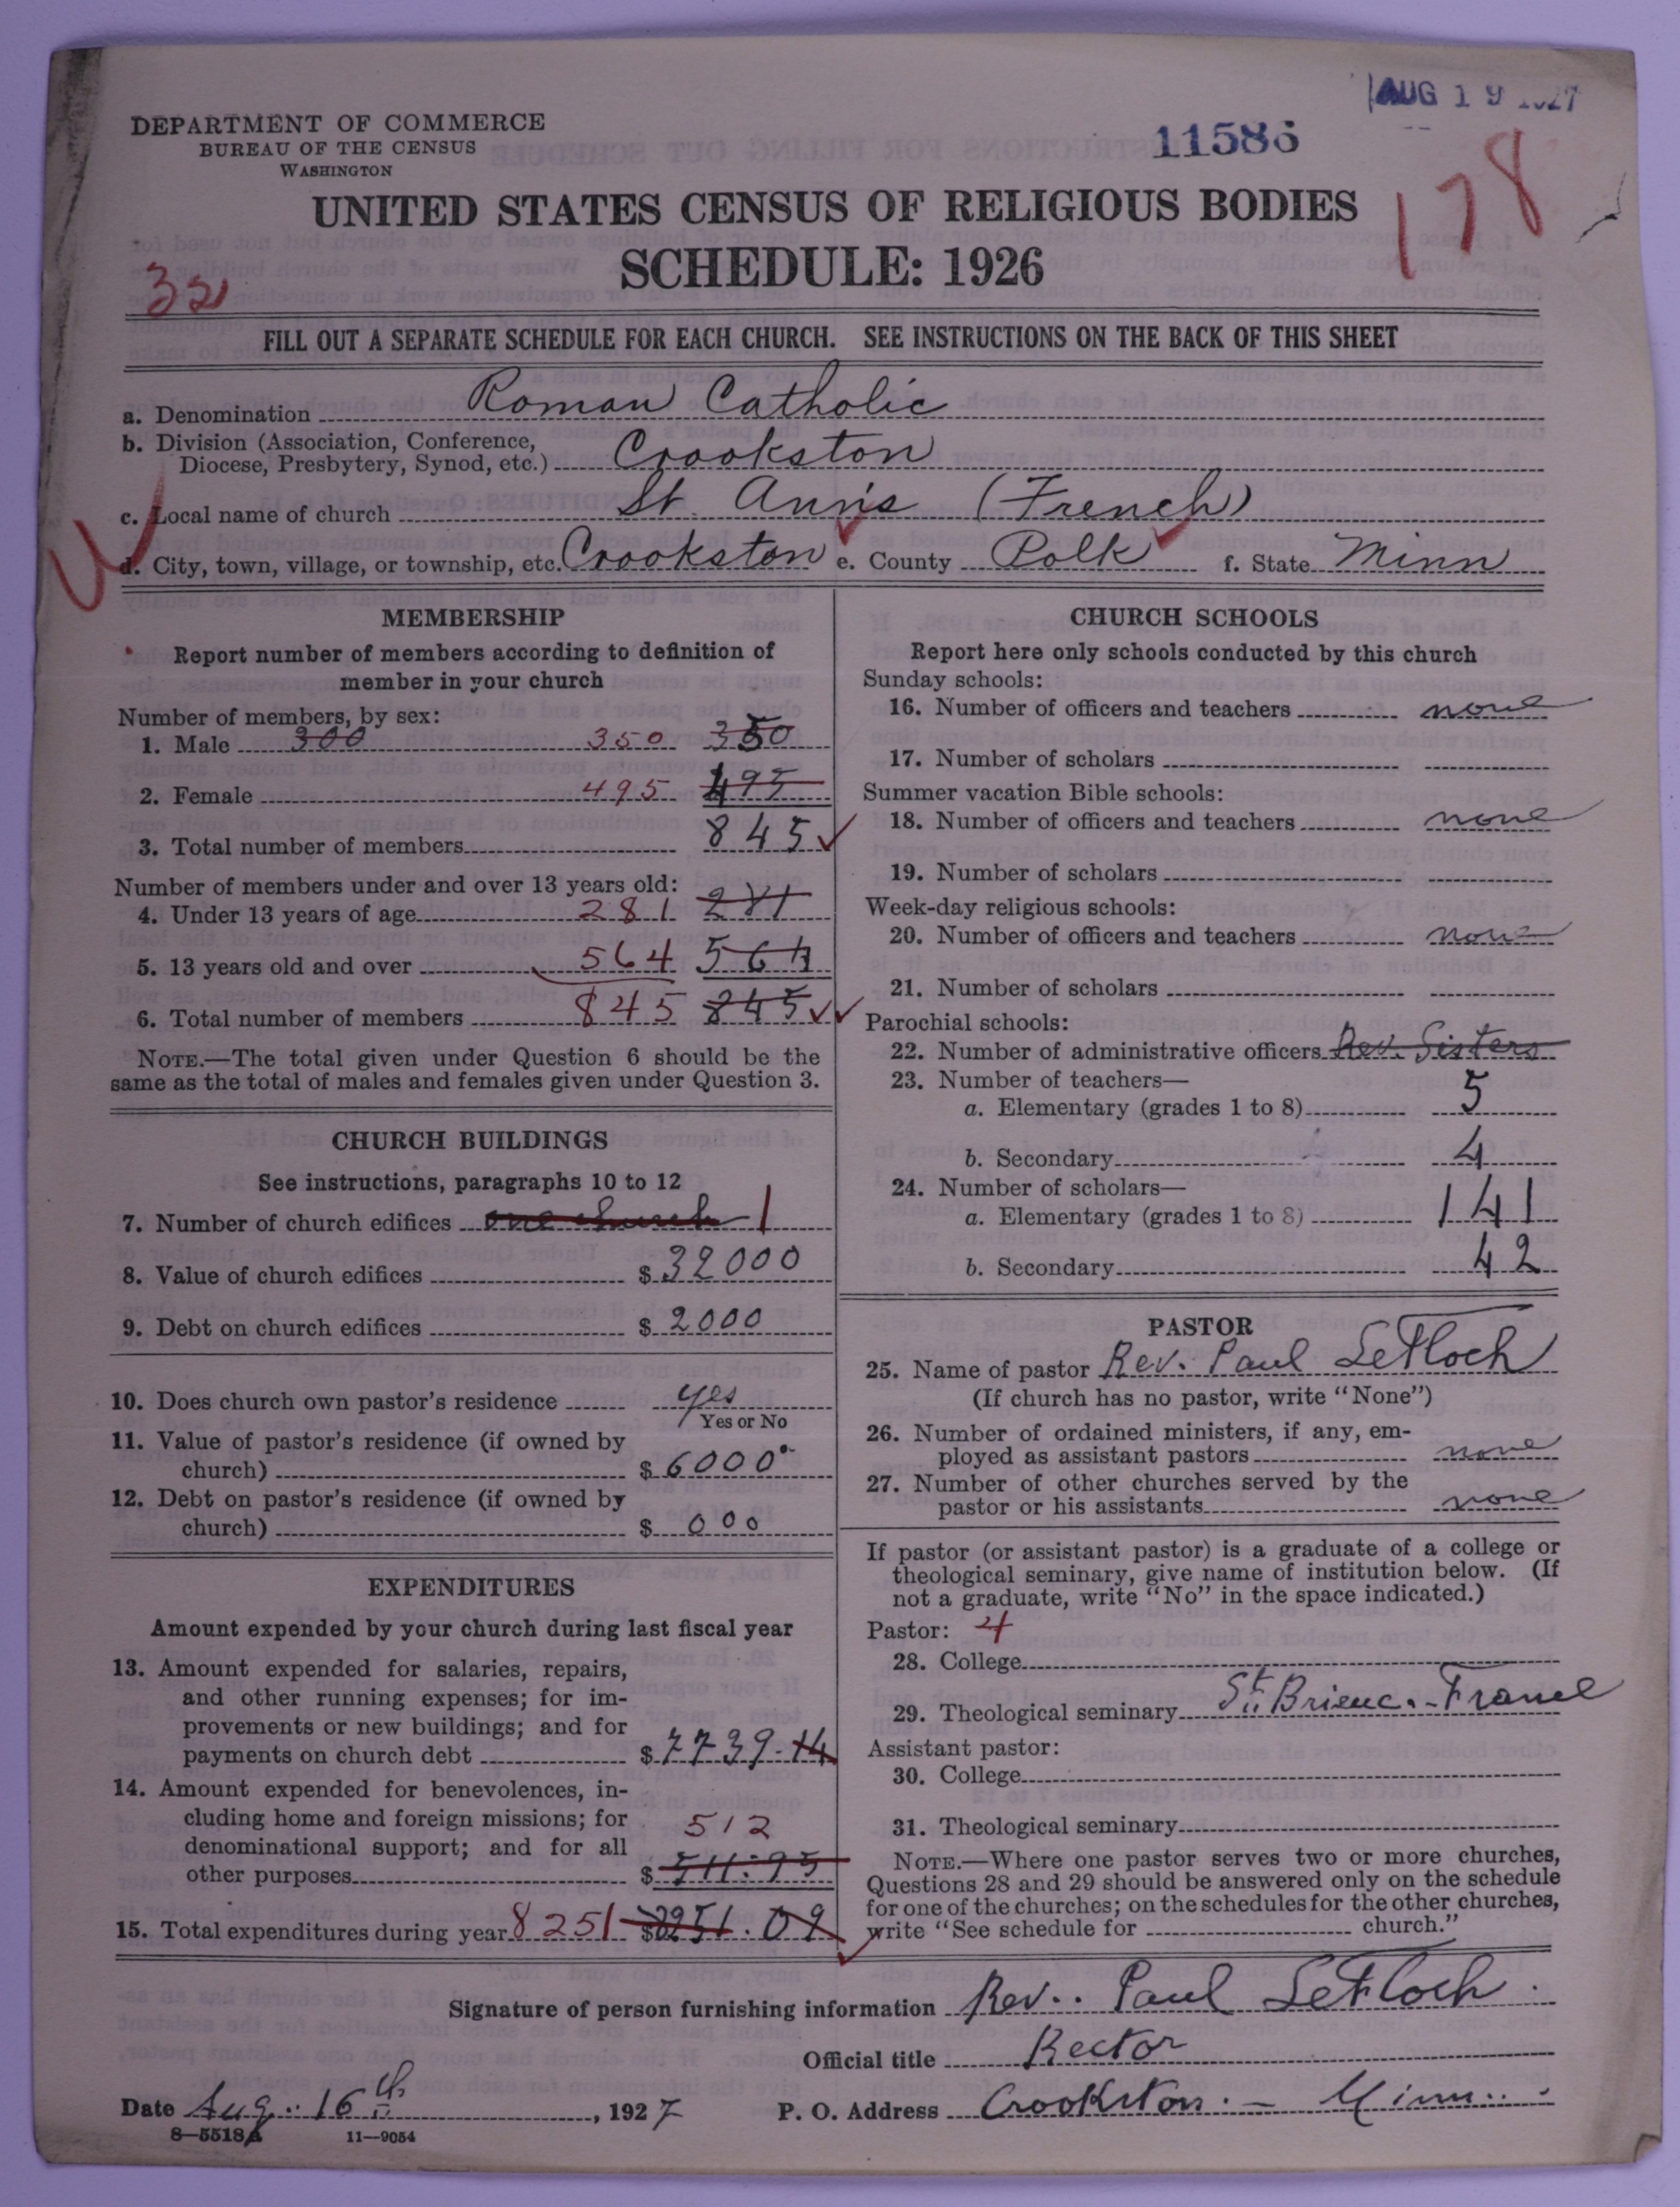 AUG 19 1927
DEPARTMENT OF COMMERCE
BUREAU OF THE CENSUS
WASHINGTON
11586
178
UNITED STATES CENSUS OF RELIGIOUS BODIES
SCHEDULE: 1926
32
FILL OUT A SEPARATE SCHEDULE FOR EACH CHURCH. SEE INSTRUCTIONS ON THE BACK OF THIS SHEET
a. Denomination Roman Catholic
b. Division (Association, Conference,
Diocese, Presbytery, Synod, etc.) Crookston
c. Local name of church St. Ann's (French)
d. City, town, village, or township, etc. Crookston e. County Polk f. State Minn
MEMBERSHIP
Report number of members according to definition of
member in your church
Number of members, by sex:
1. Male 300 350 350
2. Female 495 495
3. Total number of members 845
Number of members under and over 13 years old:
4. Under 13 years of age 281 281
5. 13 years old and over 564 564
6. Total number of members 845 845
NOTE.—The total given under Question 6 should be the
same as the total of males and females given under Question 3.
CHURCH BUILDINGS
See instructions, paragraphs 10 to 12
7. Number of church edifices one church 1
8. Value of church edifices $ 32000
9. Debt on church edifices $ 2000
10. Does church own pastor's residence yes
Yes or No
11. Value of pastor's residence (if owned by
church) $ 6000
12. Debt on pastor's residence (if owned by
church) $ 000
EXPENDITURES
Amount expended by your church during last fiscal year
13. Amount expended for salaries, repairs,
and other running expenses; for im-
provements or new buildings; and for
payments on church debt $ 7739.14
14. Amount expended for benevolences, in-
cluding home and foreign missions; for
denominational support; and for all
512
other purposes $ 511.95
15. Total expenditures during year 8251 $ 8251.09
CHURCH SCHOOLS
Report here only schools conducted by this church
Sunday schools:
16. Number of officers and teachers none
17. Number of scholars
Summer vacation Bible schools:
18. Number of officers and teachers none
19. Number of scholars
Week-day religious schools:
20. Number of officers and teachers none
21. Number of scholars
Parochial schools:
22. Number of administrative officers Rev. Sisters
23. Number of teachers—
a. Elementary (grades 1 to 8) 5
b. Secondary 4
24. Number of scholars—
a. Elementary (grades 1 to 8) 141
b. Secondary 42
PASTOR
25. Name of pastor Rev. Paul LeFloch
(If church has no pastor, write "None")
26. Number of ordained ministers, if any, em-
ployed as assistant pastors none
27. Number of other churches served by the
pastor or his assistants none
If pastor (or assistant pastor) is a graduate of a college or
theological seminary, give name of institution below. (If
not a graduate, write "No" in the space indicated.)
Pastor: 4
28. College
29. Theological seminary St. Brieuc.-France
Assistant pastor:
30. College
31. Theological seminary
NOTE.—Where one pastor serves two or more churches,
Questions 28 and 29 should be answered only on the schedule
for one of the churches; on the schedules for the other churches,
write "See schedule for church."
Signature of person furnishing information Rev. Paul LeFloch.
Official title Rector
Date Aug. 16th, 1927 P. O. Address Crookston. - Minn.
8—5518A 11—9054